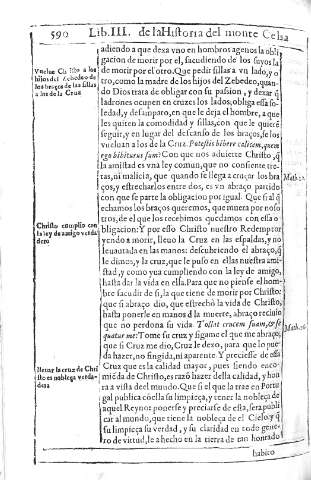 590 Lib. III. de la Historia del monte Celia
adiendo a que dexa vno en hombros agenos la obli
gacion de morir por el, sacudiendo de los suyos la
de morir por otro. Que pedir silla a vn lado, y o-
tro, como la madre de los hijos del Zebedeo, quan
do Dios trata de obligar con su passion, y dexar q̃
ladrones ocupen en cruzes los lados, obliga essa so-
ledad, y desamparo, en que le deja el hombre, a que
les quiten la comodidad y sillas, con que le quierẽ
seguir, y en lugar del descanso de los braços, se los
vuelcan a los de la Cruz. Potestis bibere calicem, quem
ego bibiturus sum? Con que nos aduierte Christo, q̃
la amistad es vna ley comun, que no consiente tre-
tas, ni malicia, que quando se llega a cruçar los bra
ços, y estrecharlos entre dos, es vn abraço partido
con que se parte la obligacion por igual. Que si al q̃
echamos los braços queremos, que muera por noso
tros, de el que los recebimos quedamos con essa o-
bligacion: Y por esso Christo nuestro Redemptor
yendo a morir, lleuo la Cruz en las espaldas, y no
leuantada en las manos: descubriendo el abraço, q̃
le dimos, y la cruz, que le puso en ellas nuestra ami-
stad, y como yua cumpliendo con la ley de amigo,
hasta dar la vida en ella. Para que no piense el hom-
bre sacudir de si, la que tiene de morir por Christo:
que si abraço dio, que estrechò la vida de Christo,
hasta ponerle en manos d la muerte, abraço recibio
que no perdona su vida. Tollat crucem suam, & se
quatur me: Tome su cruz y sigame el que me abraço;
que si Cruz me dio, Cruz le dexo, para que lo pue
da hazer, no fingida, ni aparente. Y preciesse de essa
Cruz que es la calidad mayor, pues siendo enco-
miẽda de Christo, es razõ hazer della calidad, y hon
ra a vista del mundo. Que si el que la trae en Portu
gal publica cõ ella su limpieça, y tener la nobleça de
aquel Reyno: ponerse y preciarse de esta, sera publi
car al mundo, que tiene la nobleça de el Cielo, y q̃
su limpieça su verdad, y su claridad en todo gene-
ro de virtud, le a hecho en la tierra de tan honrado
habito
Vuelue Christo a los
hijos del Zebedeo de
los braços de las sillas
a los de la Cruz
Christo cumplio con
la ley de amigo verda
dero
Lleuar la cruz de Chri
sto es nobleça verda-
dera
Math. 20
Math. 16